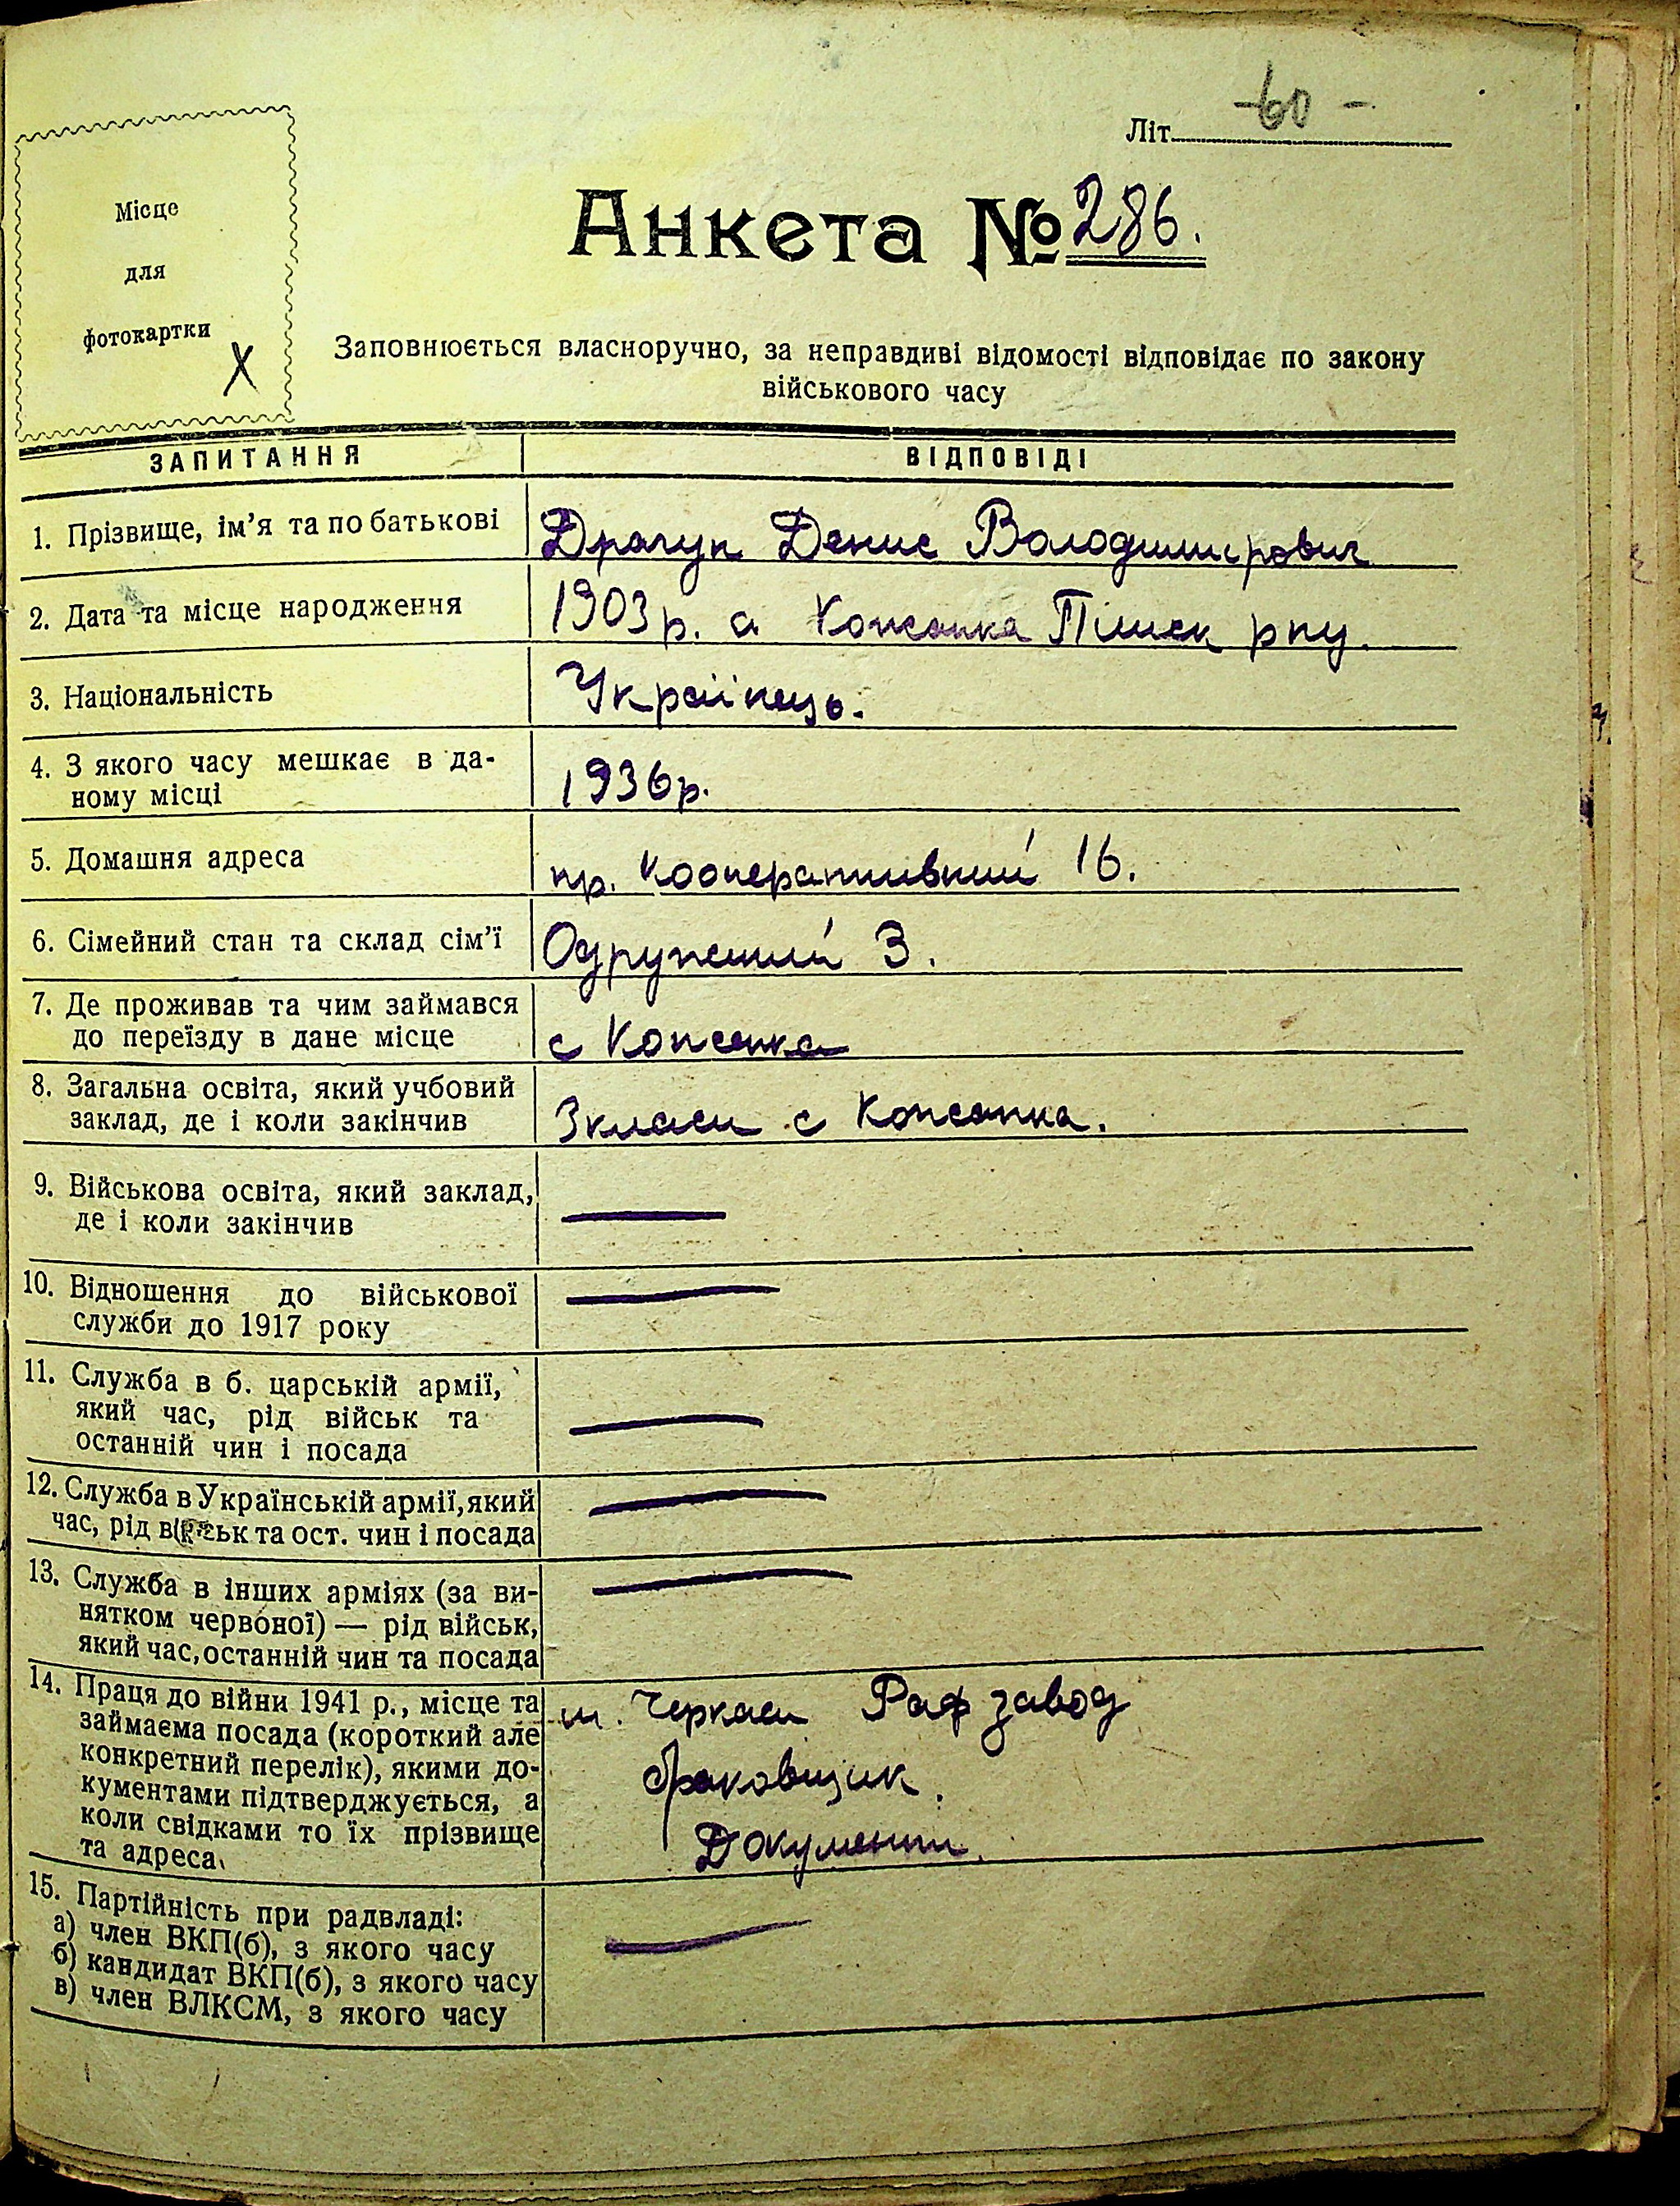 Літ. -60-
Місце
для
фотокартки
X
Анкета № 286.
Заповнюється власноручно, за неправдиві відомості відповідає по закону
військового часу
ЗАПИТАННЯ ВІДПОВІДІ
1. Прізвище, ім'я та по батькові Драгун Денис Володимирович
2. Дата та місце народження 1903 р.
3. Національність Українець.
4. З якого часу мешкає в да-
ному місці 1936 р.
5. Домашня адреса пр. Кооперативний 16.
6. Сімейний стан та склад сім'ї Одружений 3.
7. Де проживав та чим займався
до переїзду в дане місце с
8. Загальна освіта, який учбовий
заклад, де і коли закінчив 3 класи с
9. Військова освіта, який заклад,
де і коли закінчив —
10. Відношення до військової
служби до 1917 року —
11. Служба в б. царській армії,
який час, рід військ та
останній чин і посада —
12. Служба в Українській армії, який —
час, рід військ та ост. чин і посада
13. Служба в інших арміях (за ви- —
нятком червоної) — рід військ,
який час, останній чин та посада
14. Праця до війни 1941 р., місце та м. Черкаси Раф завод
займаєма посада (короткий але
конкретний перелік), якими до- браковщик.
кументами підтверджується, а
коли свідками то їх прізвище Документи.
та адреса.
15. Партійність при радвладі:
а) член ВКП(б), з якого часу —
б) кандидат ВКП(б), з якого часу
в) член ВЛКСМ, з якого часу